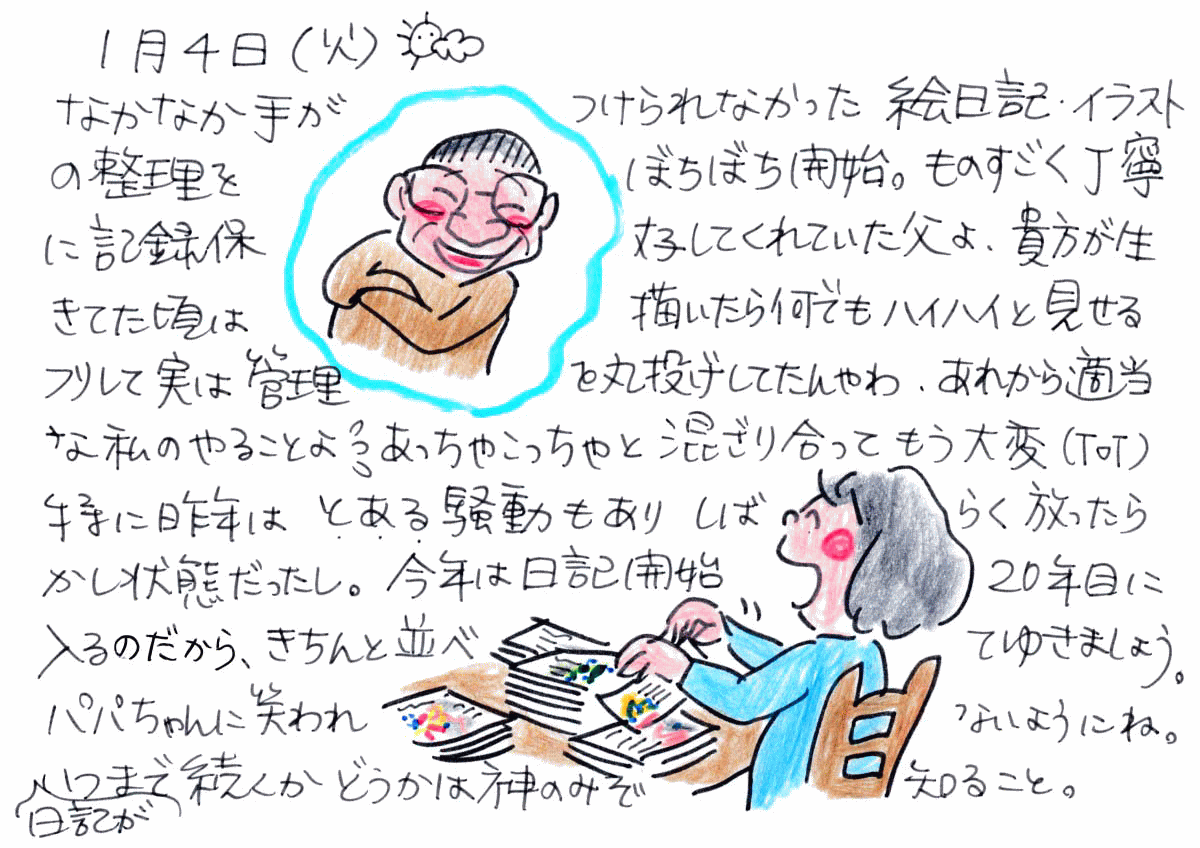 1月4日(火)
なかなか手がつけられなかった 絵日記・イラスト
の整理をぼちぼち開始。ものすごく丁寧
に記録保存してくれていた父よ、貴方が生
きてた頃は描いたら何でもハイハイと見せる
フリして実は管理を丸投げしてたんやわ、あれから適当
な私のやることよ??あっちゃこっちゃと混ざり合ってもう大変(ToT)
特に昨年は とある騒動もあり しばらく放ったら
かし状態だったし。今年は日記開始20年目に
入るのだから、きちんと並べてゆきましょう。
パパちゃんに笑われないようにね。
日記がいつまで続くかどうかは神のみぞ知ること。